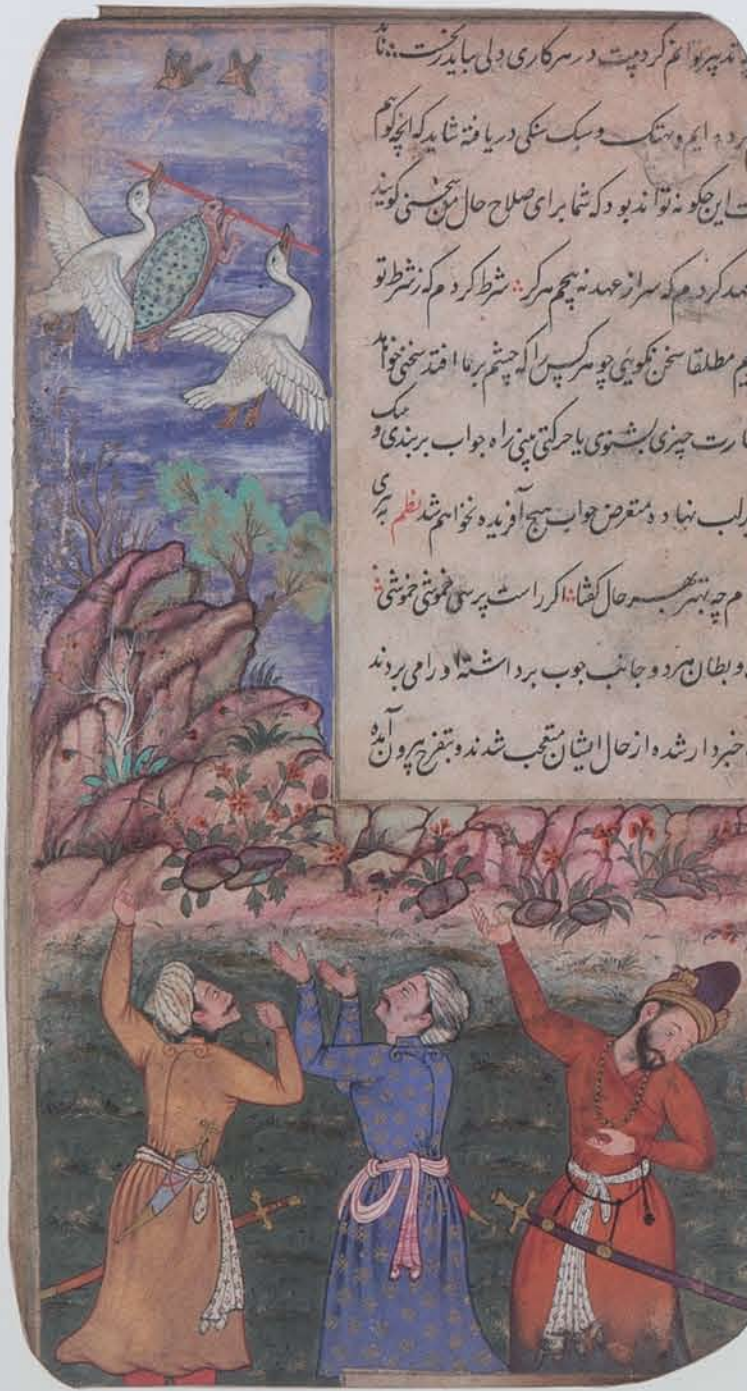 تدبیر توانم کرد مصر در هر کاری دلی باید نخست :: تا
کرده ایم و هتک و سبک سنکی دریافته شاید که انچه کوئیم
این چکونه تواند بود که شما برای صلاح حال من سخنی کویند
عهد کردم که سر از عهد نه پیچم هرکز :: شرط کردم که ز شرط تو
مطلقا سخن نکویی چو هر کس را که چشم بر ما افتد سخنی خواهد
چیزی بشنوی یا حرکتی بینی راه جواب بربندی و
بر لب نهاده متعرض جواب هیچ آفریده نخواهم شد نظم
چه بهتر بهر حال کفتا :: اکر راست پرسی خموشی خموشی ::
و بطان هر دو جانب چوب برداشته او را می بردند
خبردار شده از حال ایشان متعجب شدند و بتفرج بیرون آمده